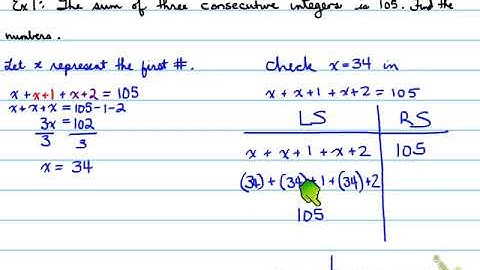 Ex 1: The sum of three consecutive integers is 105. Find the
numbers.
Let x represent the first #.
x + x+1 + x+2 = 105
x + x + x = 105-1-2
3x = 102
3 3
x = 34
Check x = 34 in
x + x + 1 + x + 2 = 105
LS RS
x + x + 1 + x + 2 105
(34) + (34) + 1 + (34) + 2
105